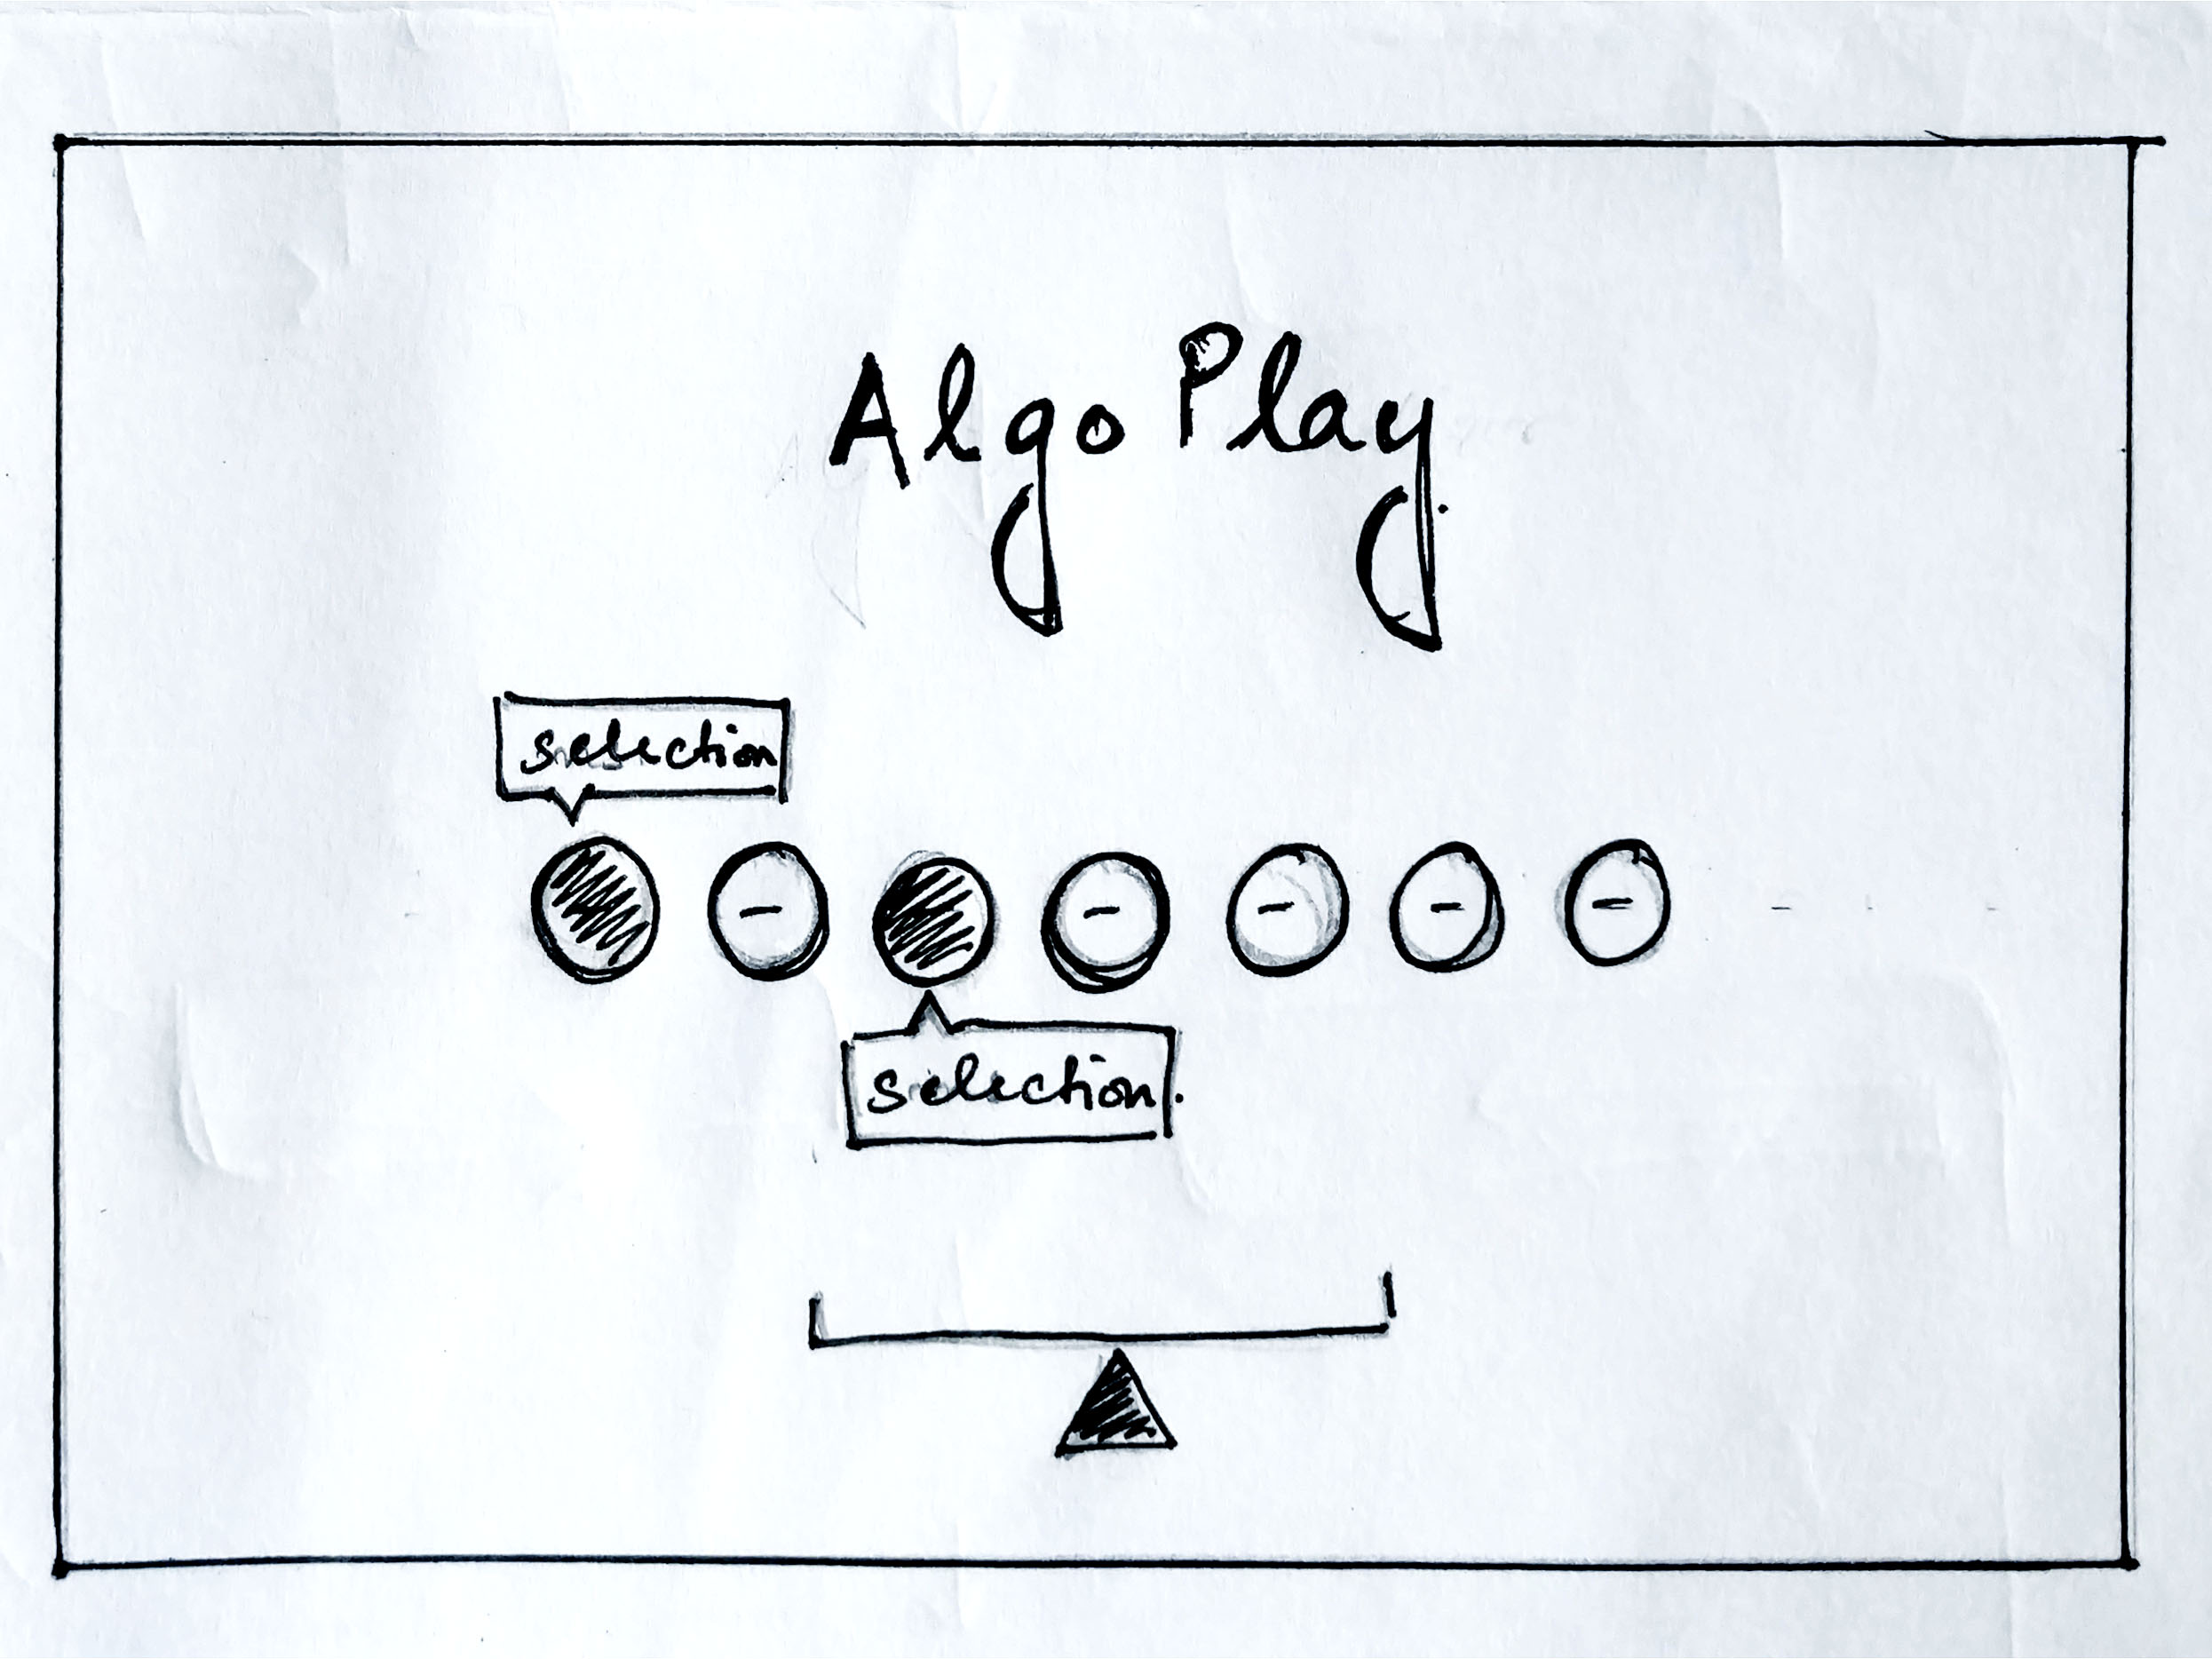 Algo Play
selection
- - - - -
selection.